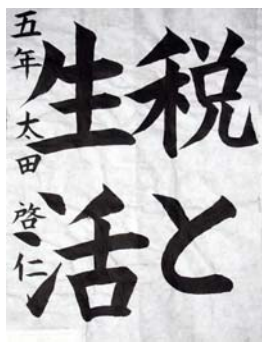 税と
生活
五年 太田 啓仁